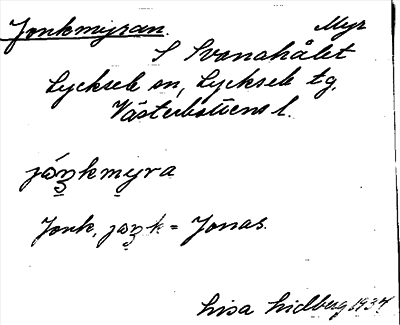 Jonkmyran. Myr
S Svanahålet
Lycksele sn, Lycksele tg.
Västerbottens l.
jónkmyra
Jonk, jonk = Jonas.
Lisa Lidberg 1934